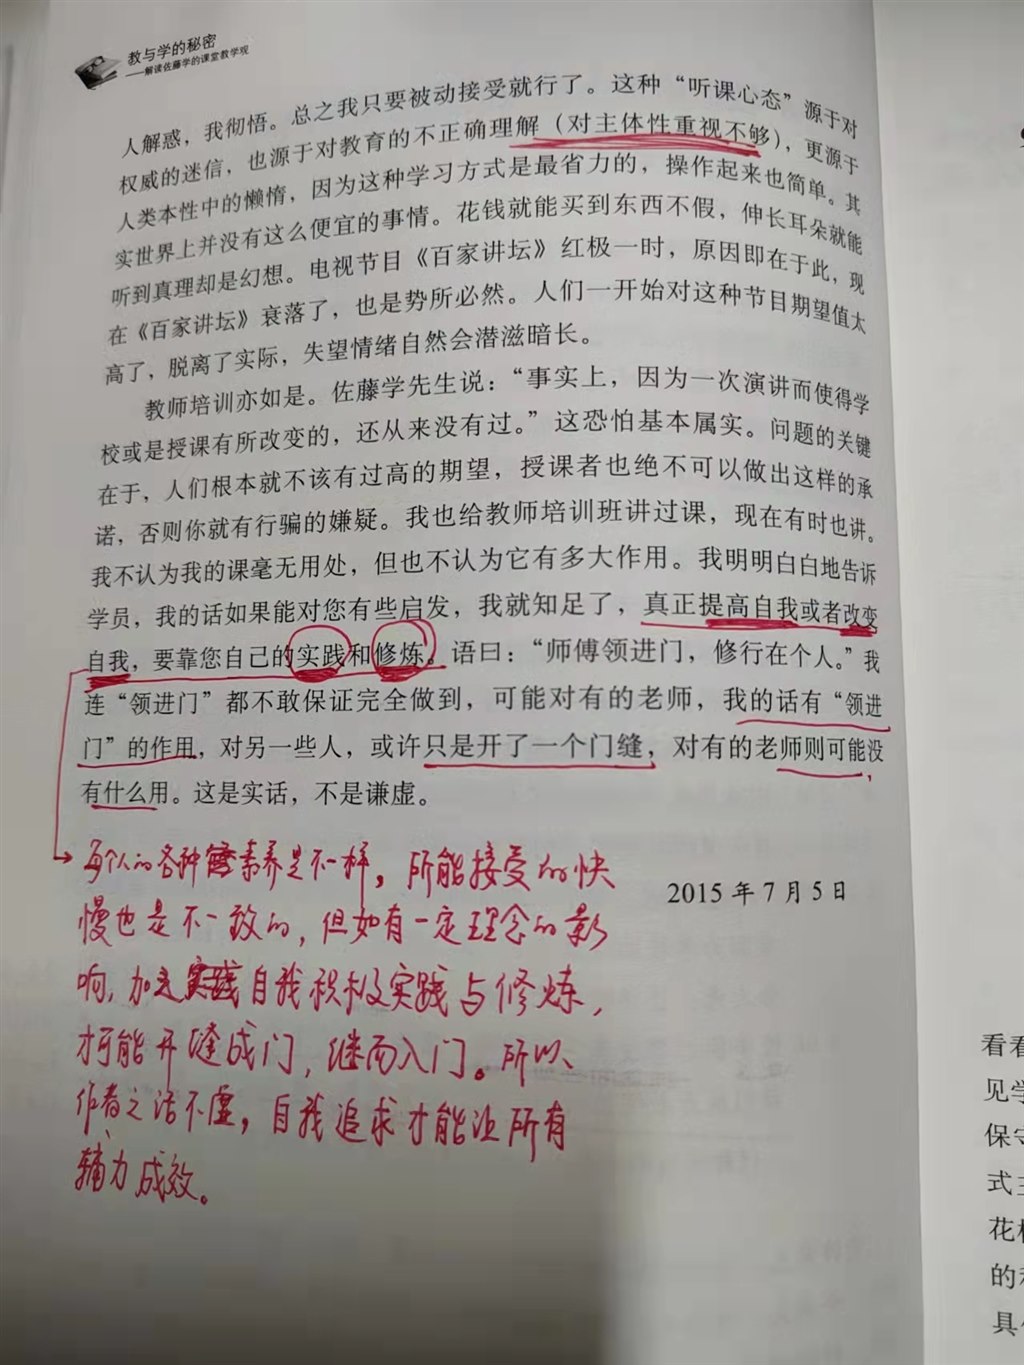 教与学的秘密
——解读佐藤学的课堂教学观
人解惑，我彻悟。总之我只要被动接受就行了。这种“听课心态”源于对
权威的迷信，也源于对教育的不正确理解（对主体性重视不够），更源于
人类本性中的懒惰，因为这种学习方式是最省力的，操作起来也简单。其
实世界上并没有这么便宜的事情。花钱就能买到东西不假，伸长耳朵就能
听到真理却是幻想。电视节目《百家讲坛》红极一时，原因即在于此，现
在《百家讲坛》衰落了，也是势所必然。人们一开始对这种节目期望值太
高了，脱离了实际，失望情绪自然会潜滋暗长。
教师培训亦如是。佐藤学先生说：“事实上，因为一次演讲而使得学
校或是授课有所改变的，还从来没有过。”这恐怕基本属实。问题的关键
在于，人们根本就不该有过高的期望，授课者也绝不可以做出这样的承
诺，否则你就有行骗的嫌疑。我也给教师培训班讲过课，现在有时也讲。
我不认为我的课毫无用处，但也不认为它有多大作用。我明明白白地告诉
学员，我的话如果能对您有些启发，我就知足了，真正提高自我或者改变
自我，要靠您自己的实践和修炼。语曰：“师傅领进门，修行在个人。”我
连“领进门”都不敢保证完全做到，可能对有的老师，我的话有“领进
门”的作用，对另一些人，或许只是开了一个门缝，对有的老师则可能没
有什么用。这是实话，不是谦虚。
2015年7月5日
每个人的各种素养是不一样，所能接受的快
慢也是不一致的，但如有一定理念的影
响，加之自我积极实践与修炼，
才可能开缝成门，继而入门。所以、
作者之话不虚，自我追求才能让所有
辅力成效。
看看
见学
保守
式
花
的
具